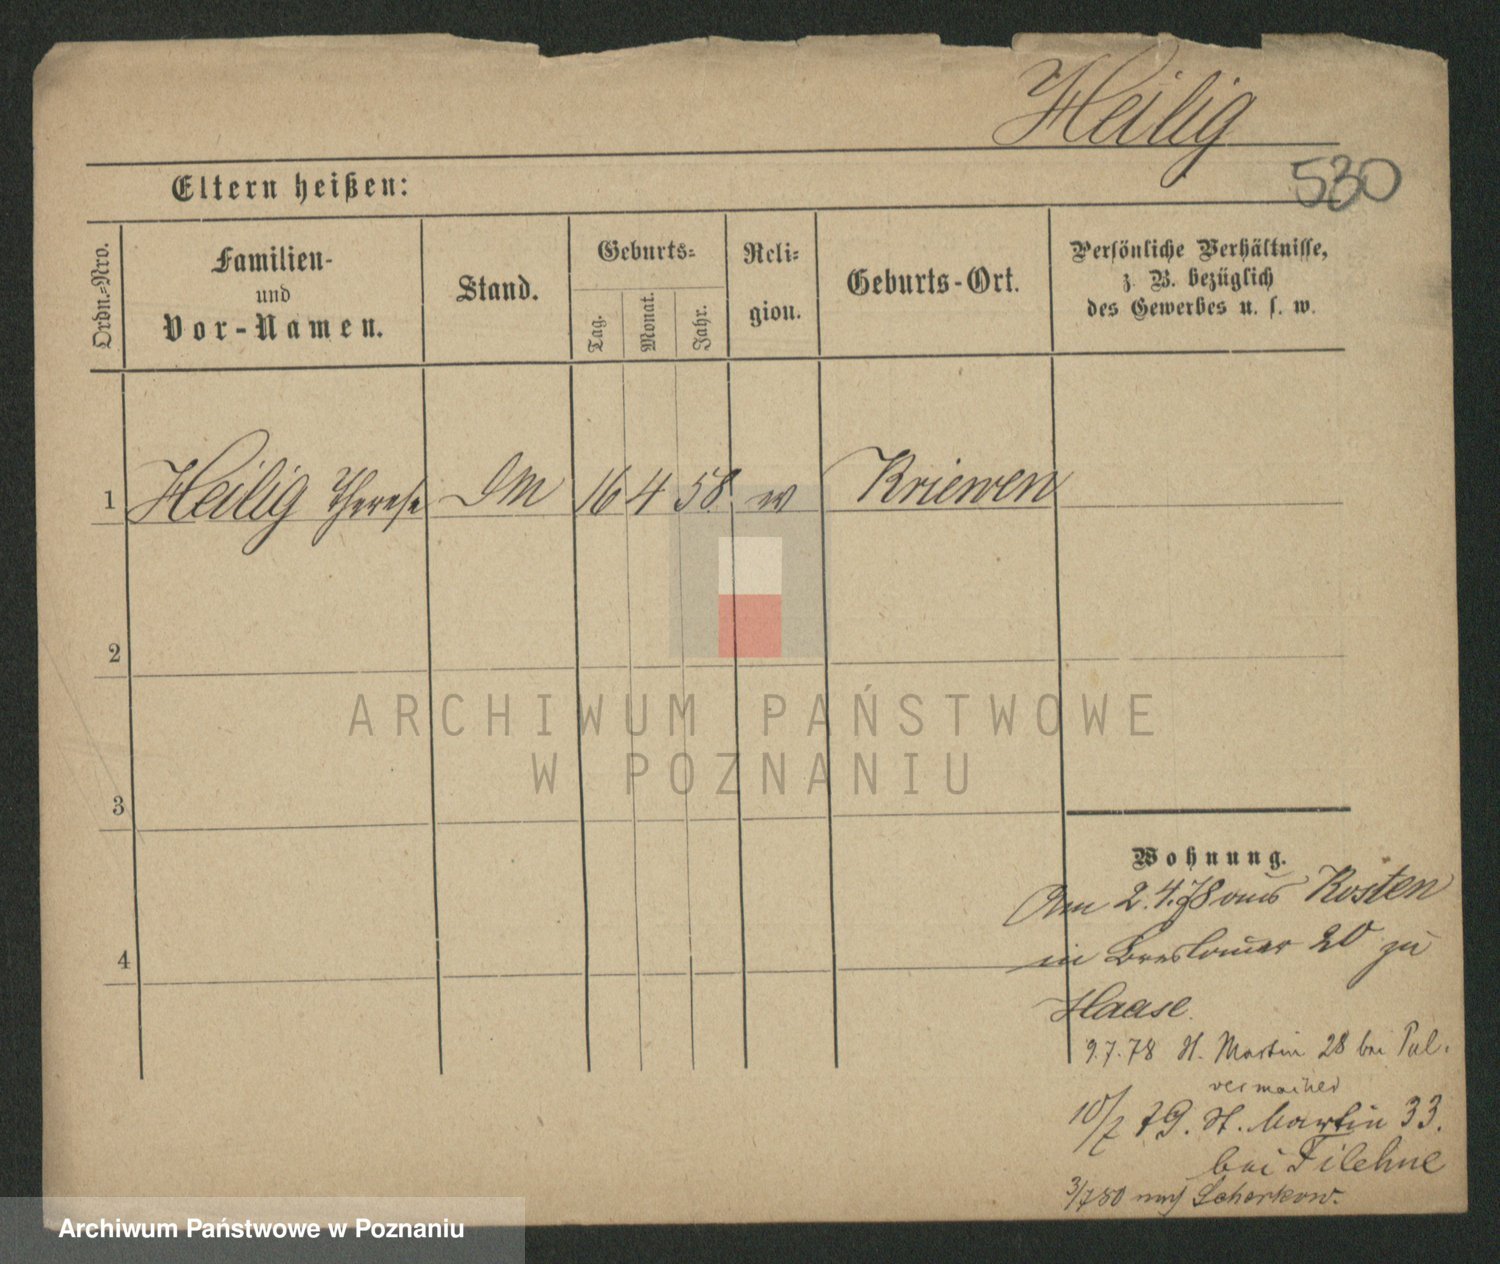 Heilig
530
Eltern heißen:
Ordn.-Nro.
Familien-
und
Vor-Namen.
Stand.
Geburts-
Tag.
Monat.
Jahr.
Reli-
gion.
Geburts-Ort.
Persönliche Verhältnisse,
z. B. bezüglich
des Gewerbes u. s. w.
1 Heilig Therese DM 16 4 58 Kriewen
2
3
4
ARCHIWUM PAŃSTWOWE
W POZNANIU
Wohnung.
Am 2.4.78 aus Kosten
in Breslauer 20 zu
Haase.
9.7.78 St. Martin 28 bei Pul-
vermacher
10/7 79. St. Martin 33.
bei Filehne
3/7 80 nach
Archiwum Państwowe w Poznaniu